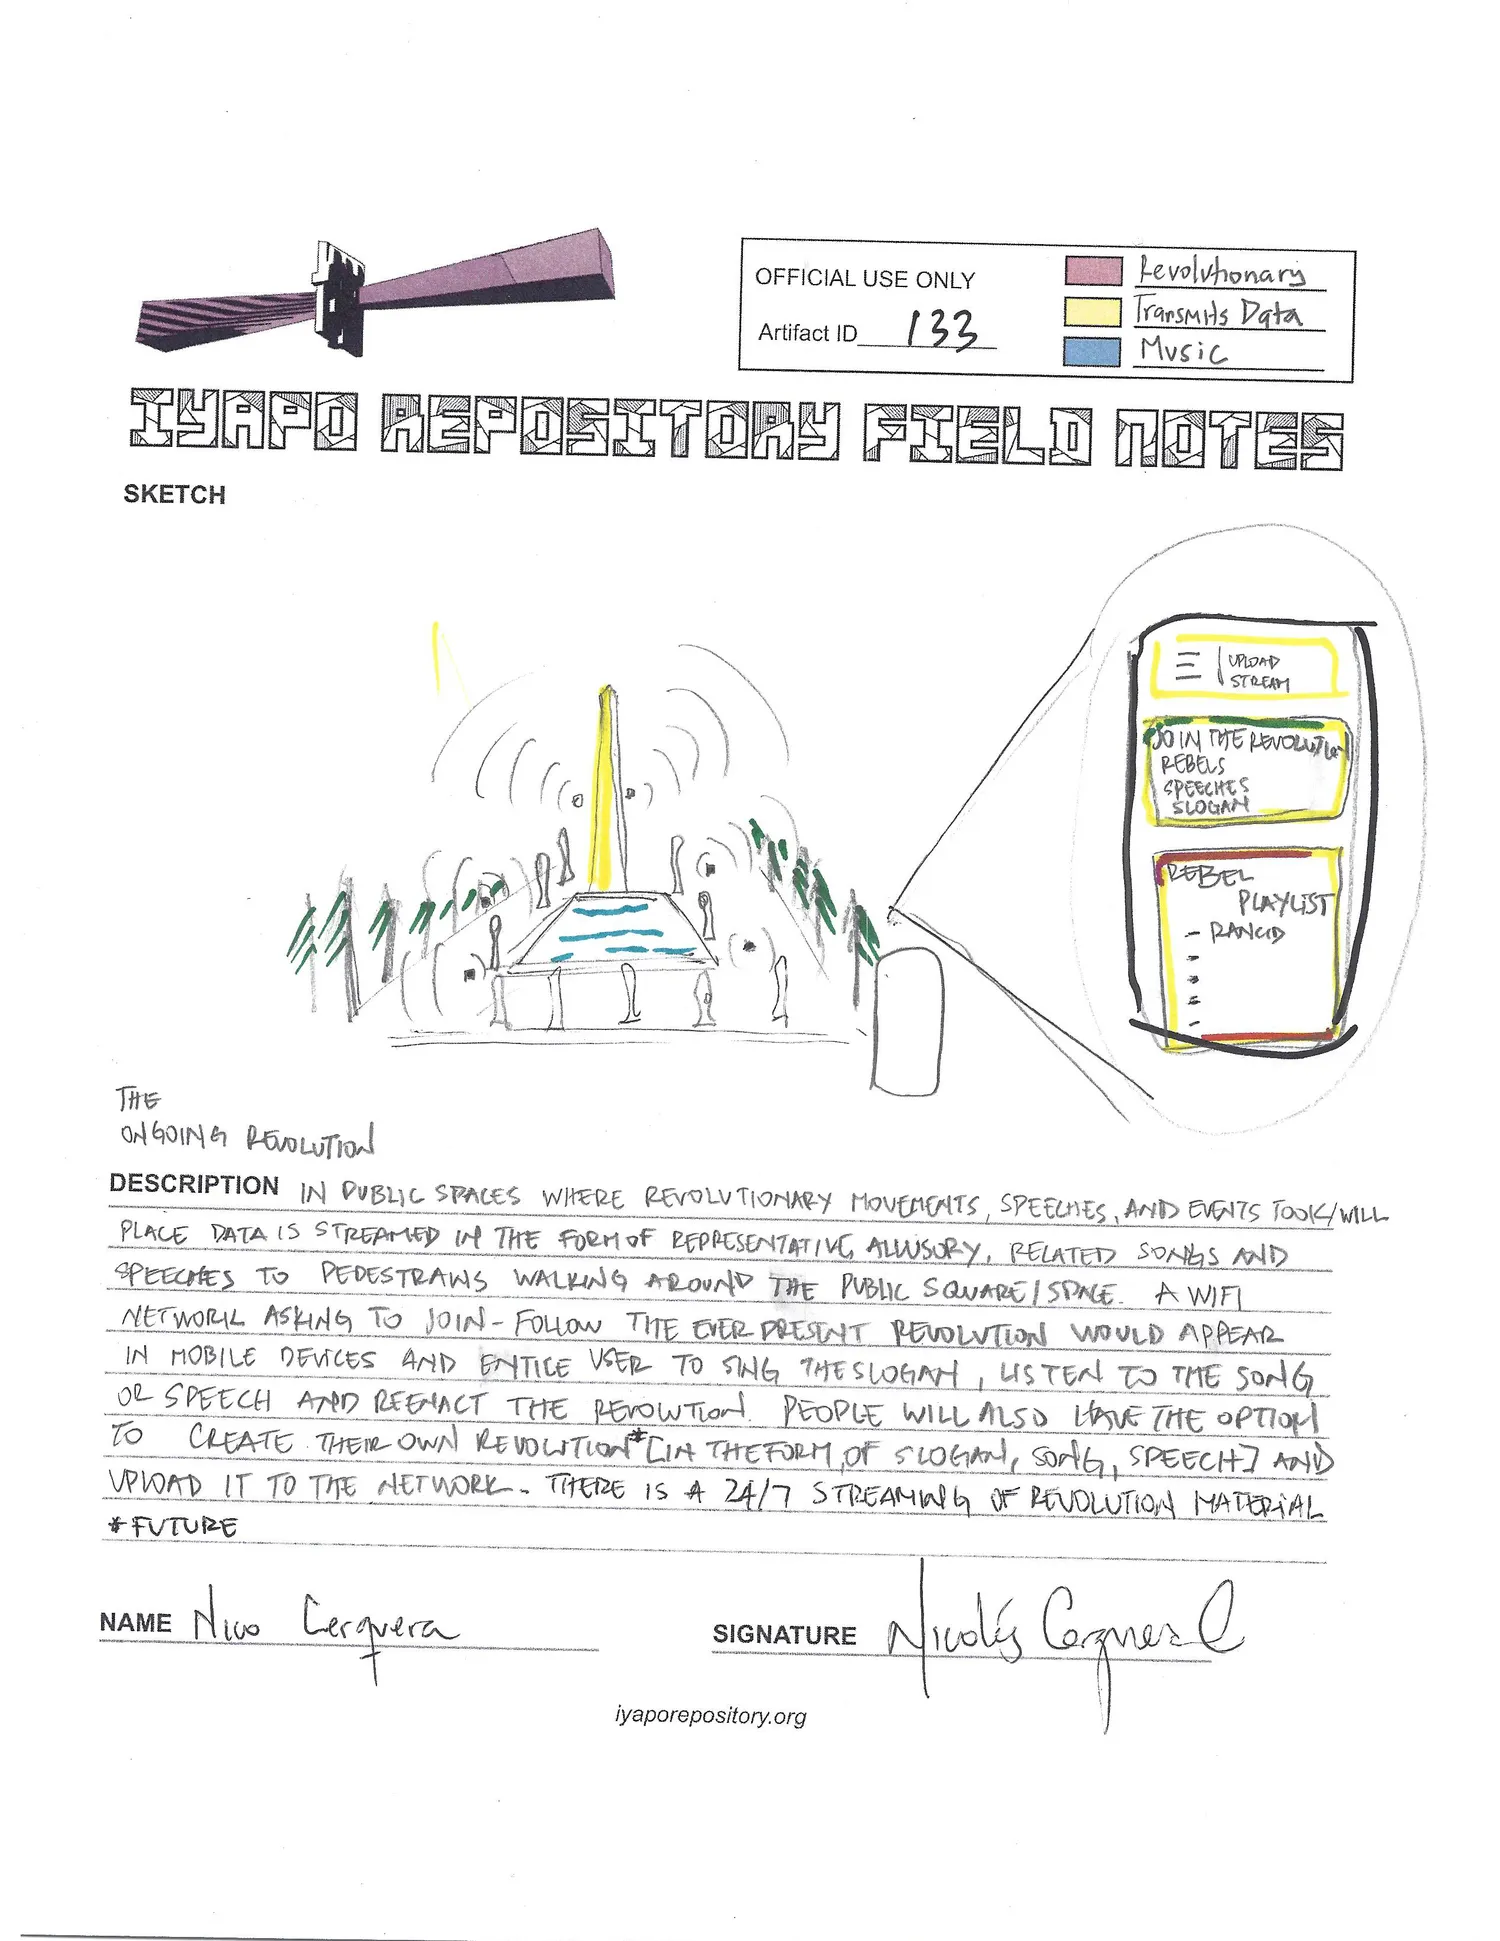 OFFICIAL USE ONLY
Artifact ID 133
Revolutionary
Transmits Data
Music
IYAPO REPOSITORY FIELD NOTES
SKETCH
UPLOAD
STREAM
JOIN THE REVOLUTION
REBELS
SPEECHES
SLOGAN
REBEL
PLAYLIST
- RANCID
THE
ONGOING REVOLUTION
DESCRIPTION IN PUBLIC SPACES WHERE REVOLUTIONARY MOVEMENTS, SPEECHES, AND EVENTS TOOK/WILL
PLACE DATA IS STREAMED IN THE FORM OF REPRESENTATIVE, ALLUSORY, RELATED SONGS AND
SPEECHES TO PEDESTRAINS WALKING AROUND THE PUBLIC SQUARE/SPACE. A WIFI
NETWORK ASKING TO JOIN-FOLLOW THE EVER PRESENT REVOLUTION WOULD APPEAR
IN MOBILE DEVICES AND ENTICE USER TO SING THE SLOGAN, LISTEN TO THE SONG
OR SPEECH AND REENACT THE REVOLUTION. PEOPLE WILL ALSO HAVE THE OPTION
TO CREATE THEIR OWN REVOLUTION* [IN THE FORM OF SLOGAN, SONG, SPEECH] AND
UPLOAD IT TO THE NETWORK. THERE IS A 24/7 STREAMING OF REVOLUTION MATERIAL
* FUTURE
NAME Nico Cerquera
SIGNATURE Nicolás Cerquera
iyaporepository.org